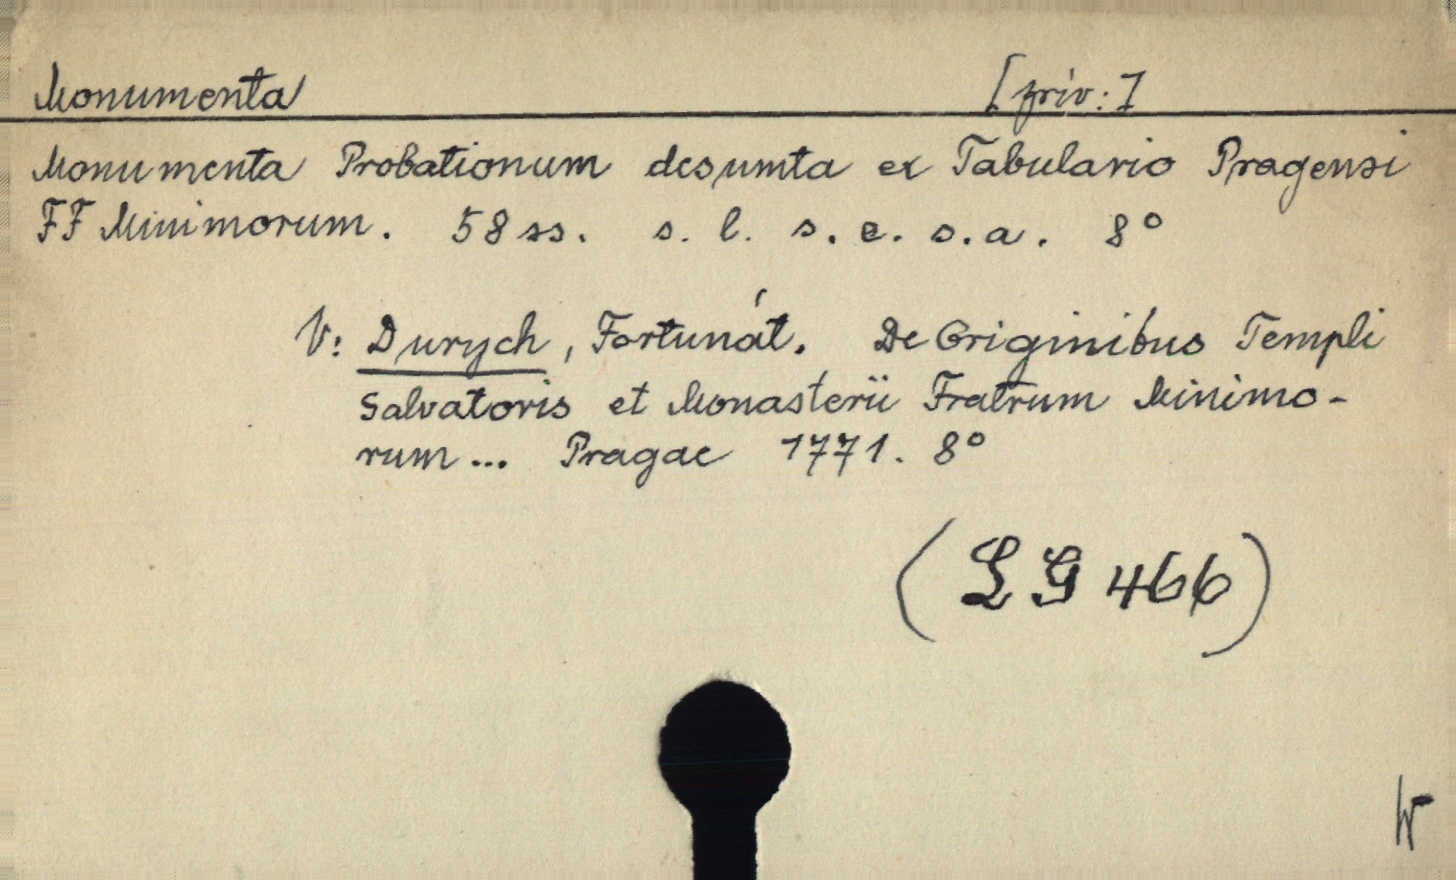 Monumenta [priv:]
Monumenta Probationum desumta ex Tabulario Pragensi
FF Minimorum. 58 ss. s. l. s. e. s. a. 8°
V: Durych, Fortunát. De Originibus Templi
Salvatoris et Monasterii Fratrum Minimo-
rum... Pragae 1771. 8°
(LG 466)